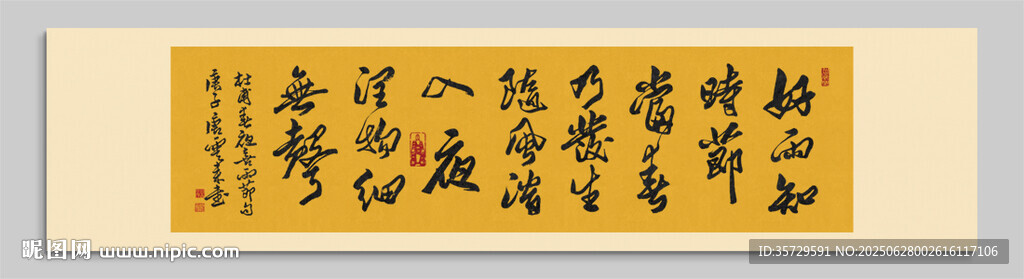 好雨知
時節
當春
乃發生
隨風潛
入夜
潤物細
無聲
杜甫春夜喜雨節句
昵图网 www.nipic.com
ID:35729591 NO:20250628002616117106